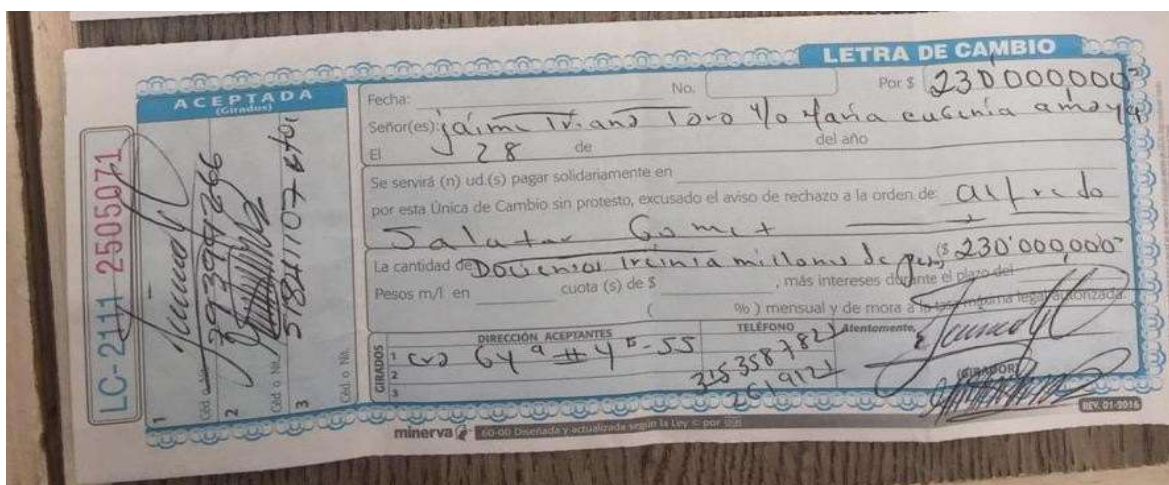 LETRA DE CAMBIO
ACEPTADA
(Girados)
LC-2111 2505071
1
Céd. o Nit.
2
Céd. o Nit.
3
Céd. o Nit.
Fecha: No. Por $ 230'000,000=
Señor(es): jaime Triana Toro y/o Maria eugenia amaya
El 28 de del año
Se servirá (n) ud.(s) pagar solidariamente en
por esta Única de Cambio sin protesto, excusado el aviso de rechazo a la orden de: alfredo
Salazar Gomez
La cantidad de Docientos treinta millones de pesos ($ 230'000,000=
Pesos m/l en cuota (s) de $ , más intereses durante el plazo del
( %) mensual y de mora a la tasa máxima legal autorizada.
DIRECCIÓN ACEPTANTES TELÉFONO Atentamente,
GIRADOS
1 64 a # 4 55
2
3
(GIRADOR)
minerva 60-00 Diseñada y actualizada según la Ley © por
REV. 01-2016